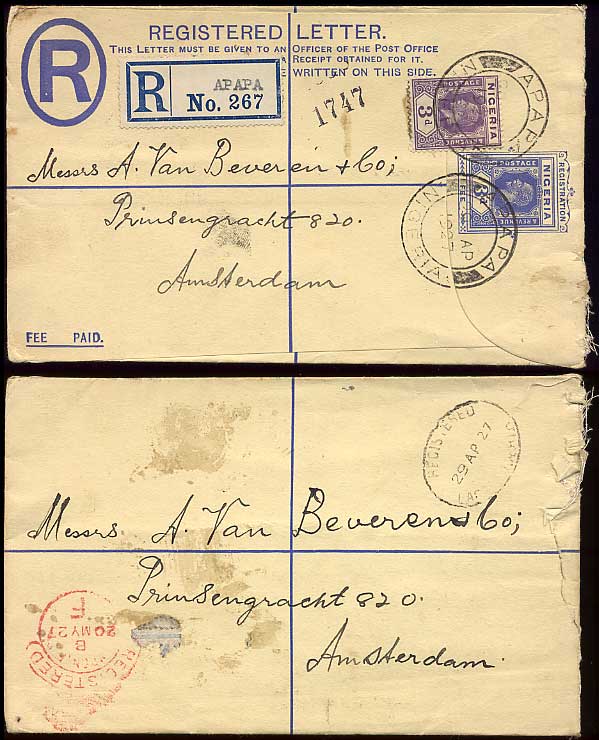 R
REGISTERED LETTER.
THIS LETTER MUST BE GIVEN TO AN OFFICER OF THE POST OFFICE
A RECEIPT OBTAINED FOR IT.
WRITTEN ON THIS SIDE.
R
APAPA
No. 267
1747
NIGERIA
3d
POSTAGE
& REVENUE
APAPA
NIGERIA
REGISTRATION
3d
POSTAGE
& REVENUE
APAPA
AP
1927
NIGERIA
Messrs A. Van Beveren & Co;
Prinsengracht 820.
Amsterdam
FEE PAID.
REGISTERED
29 AP 27
Messrs A. Van Beveren & Co;
Prinsengracht 820.
Amsterdam.
REGISTERED
20 MY 27
B
F